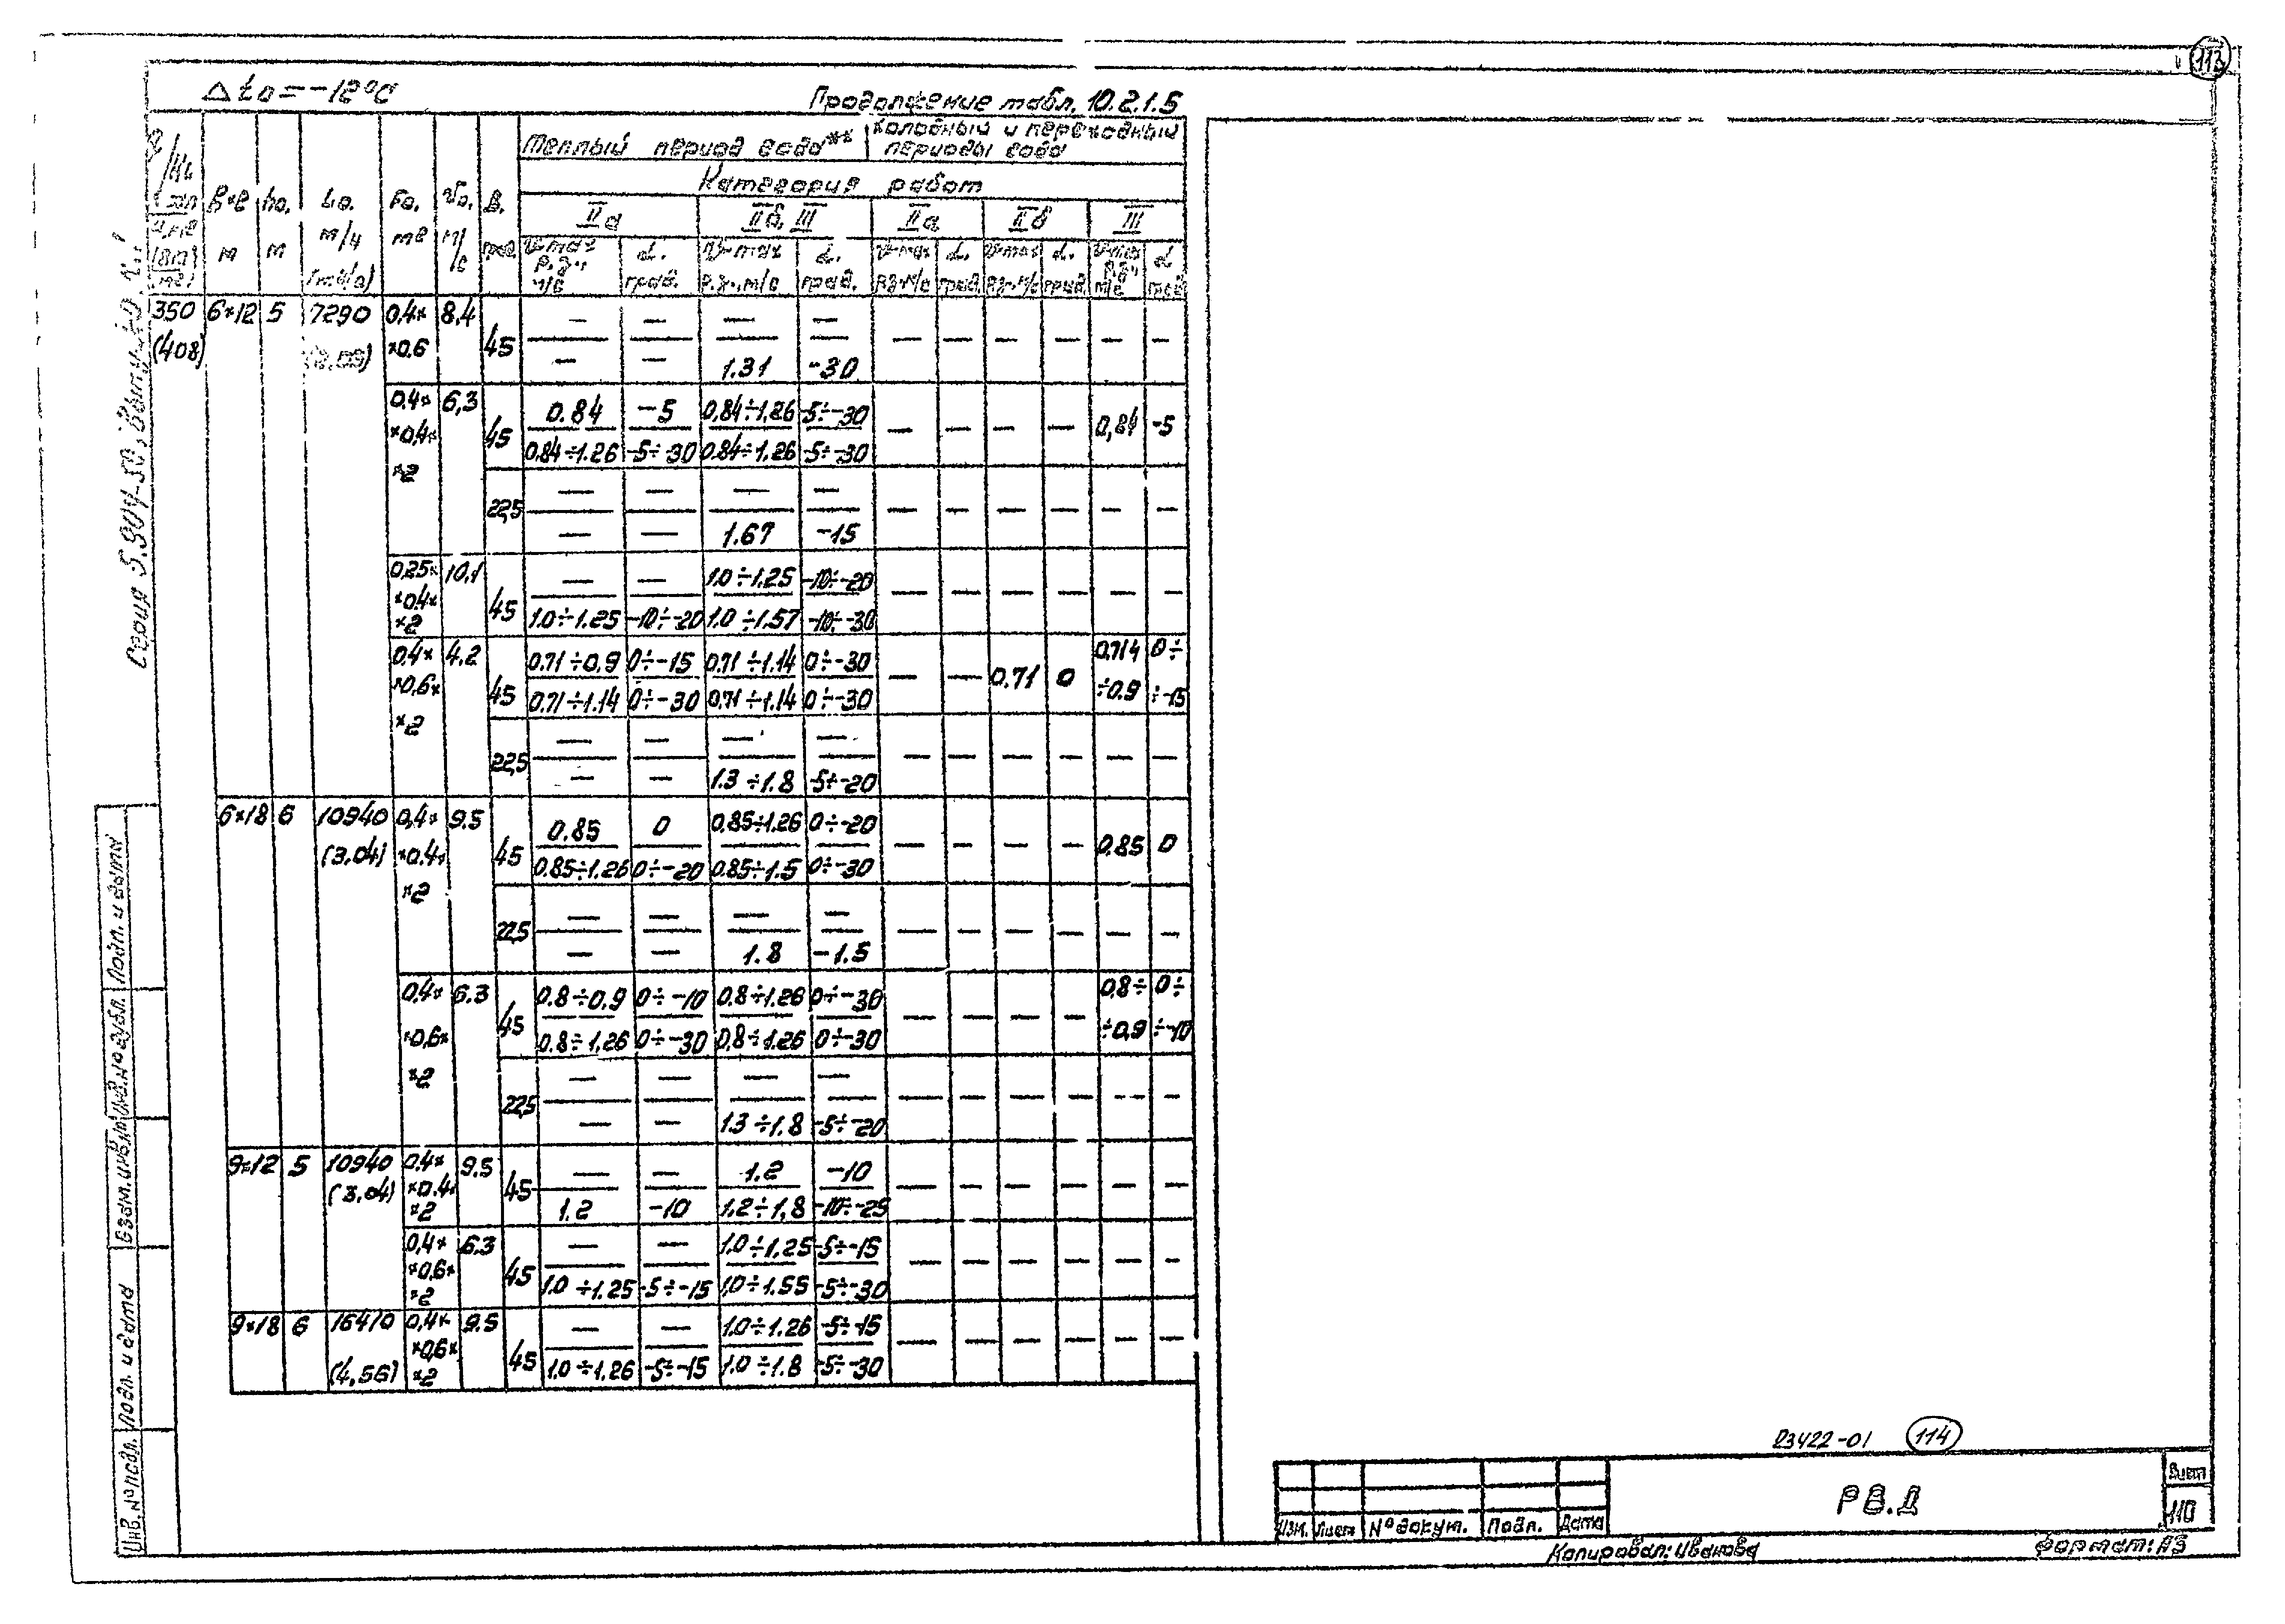 113
Δto=-12°C
Продолжение табл. 10.2.1.5
Теплый период года** Холодный и переходный периоды года
Категория работ
В×ℓ м ho, м Lо, м³/ч Fo, м² Vo, м/с β, град
IIа IIб, III IIа IIб III
350 6×12 5 7290 0,4× 8,4 45 — — — —
(408) ×0,6 — — 1.31 -30 — — — — — —
0,4× 6,3 45 0.84 -5 0,84÷1,26 -5÷-30
×0,4× 0.84÷1.26 -5÷-30 0.84÷1,26 -5÷-30 — — — — 0,84 -5
×2
22,5 — — — —
— — 1.67 -15 — — — — — —
0,25× 10,1 45 — — 1.0÷1.25 -10÷-20
×0,4× ×2 1.0÷1.25 -10÷-20 1.0÷1.57 -10÷-30 — — — — — —
0,4× 4.2 45 0.71÷0.9 0÷-15 0.71÷1.14 0÷-30
×0,6× 0.71÷1.14 0÷-30 0.71÷1.14 0÷-30 — — 0.71 0 0.714÷0.9 0÷÷-15
×2
22,5 — — — —
— — 1.3÷1.8 -5÷-20 — — — — — —
6×18 6 10940 0,4× 9.5 45 0.85 0 0.85÷1.26 0÷-20
(3,04) ×0,4× 0.85÷1.26 0÷-20 0.85÷1.5 0÷-30 — — — — 0.85 0
×2
22,5 — — — —
— — 1.8 -1.5 — — — — — —
0,4× 6.3 45 0.8÷0.9 0÷-10 0.8÷1.26 0÷-30
×0,6× 0.8÷1.26 0÷-30 0,8÷1.26 0÷-30 — — — — 0,8÷÷0,9 0÷÷-10
×2
22,5 — — — —
— — 1.3÷1.8 -5÷-20 — — — — — —
9×12 5 10940 0.4× 9.5 45 — — 1.2 -10
(3,04) ×0.4× ×2 1.2 -10 1.2÷1,8 -10÷-25 — — — — — —
0,4× 6.3 45 — — 1,0÷1,25 -5÷-15
×0,6× ×2 1.0÷1.25 -5÷-15 1,0÷1.55 -5÷-30 — — — — — —
9×18 6 16410 0,4× 9.5 45 — — 1.0÷1.26 -5÷-15
(4,56) ×0,6× ×2 1.0÷1,26 -5÷-15 1.0÷1.8 -5÷-30 — — — — — —
Подп. и дата
Инв. № дубл.
Взам. инв. №
Подп. и дата
Инв. № подл.
23422-01 114
Изм. Лист № докум. Подп. Дата
РВ.Д
Лист
110
Копировал: Иванова
Формат: А3